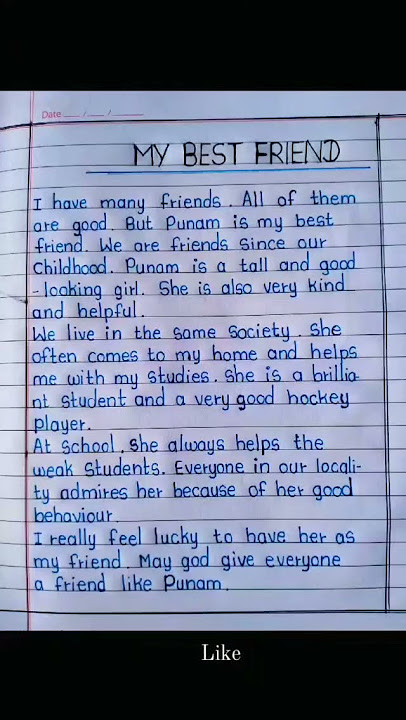 Date ___/___/______
MY BEST FRIEND
I have many friends. All of them
are good. But Punam is my best
friend. We are friends since our
Childhood. Punam is a tall and good
-looking girl. She is also very kind
and helpful.
We live in the same Society. She
often comes to my home and helps
me with my studies. She is a brillia-
nt student and a very good hockey
player.
At School, She always helps the
weak Students. Everyone in our locali-
ty admires her because of her good
behaviour.
I really feel lucky to have her as
my friend. May god give everyone
a friend like Punam.
Like